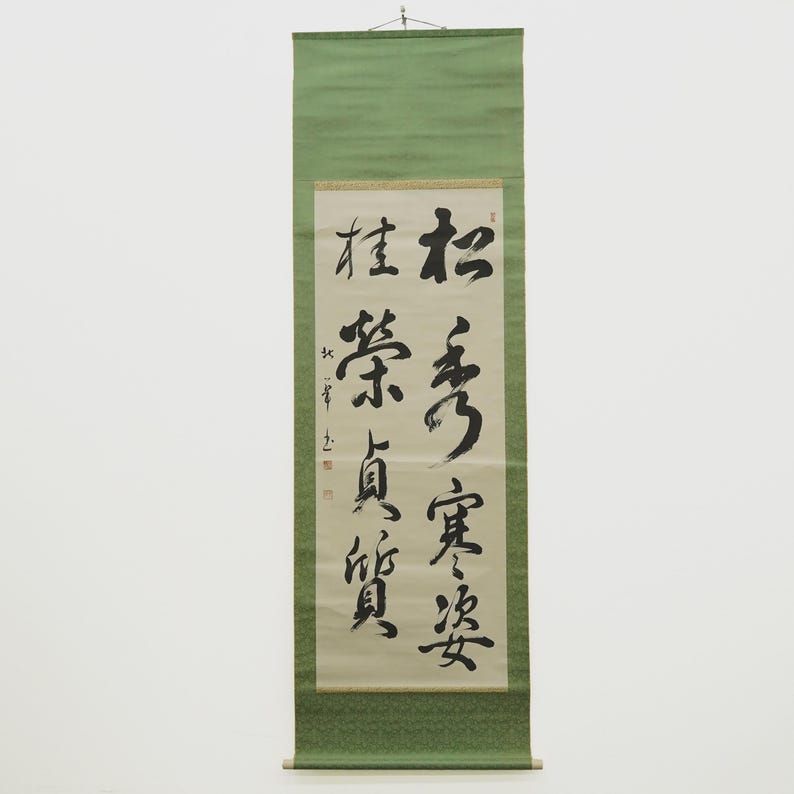 松秀寒姿
桂榮貞質
北華書